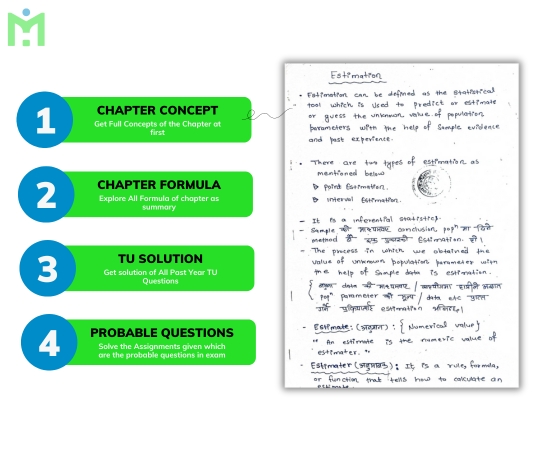 1
CHAPTER CONCEPT
Get Full Concepts of the Chapter at
first
2
CHAPTER FORMULA
Explore All Formula of chapter as
summary
3
TU SOLUTION
Get solution of All Past Year TU
Questions
4
PROBABLE QUESTIONS
Solve the Assignments given which
are the probable questions in exam
Estimation
• Estimation can be defined as the statistical
tool which is used to predict or estimate
or guess the unknown value of population
parameters with the help of sample evidence
and past experience.
• There are two types of estimation as
mentioned below
point Estimation.
interval Estimation.
- It is a inferential statistics.
- Sample को conclusion, popⁿ मा
method Estimation.
- The process in which we obtained the
value of unknown population parameter with
the help of sample data is estimation.
data को
popⁿ parameter को data etc
estimation
- Estimate: (अनुमान) : { Numerical value }
" An estimate is the numeric value of
estimater. "
• Estimater : It is a rule, formula,
or function that tells how to calculate an
estimate